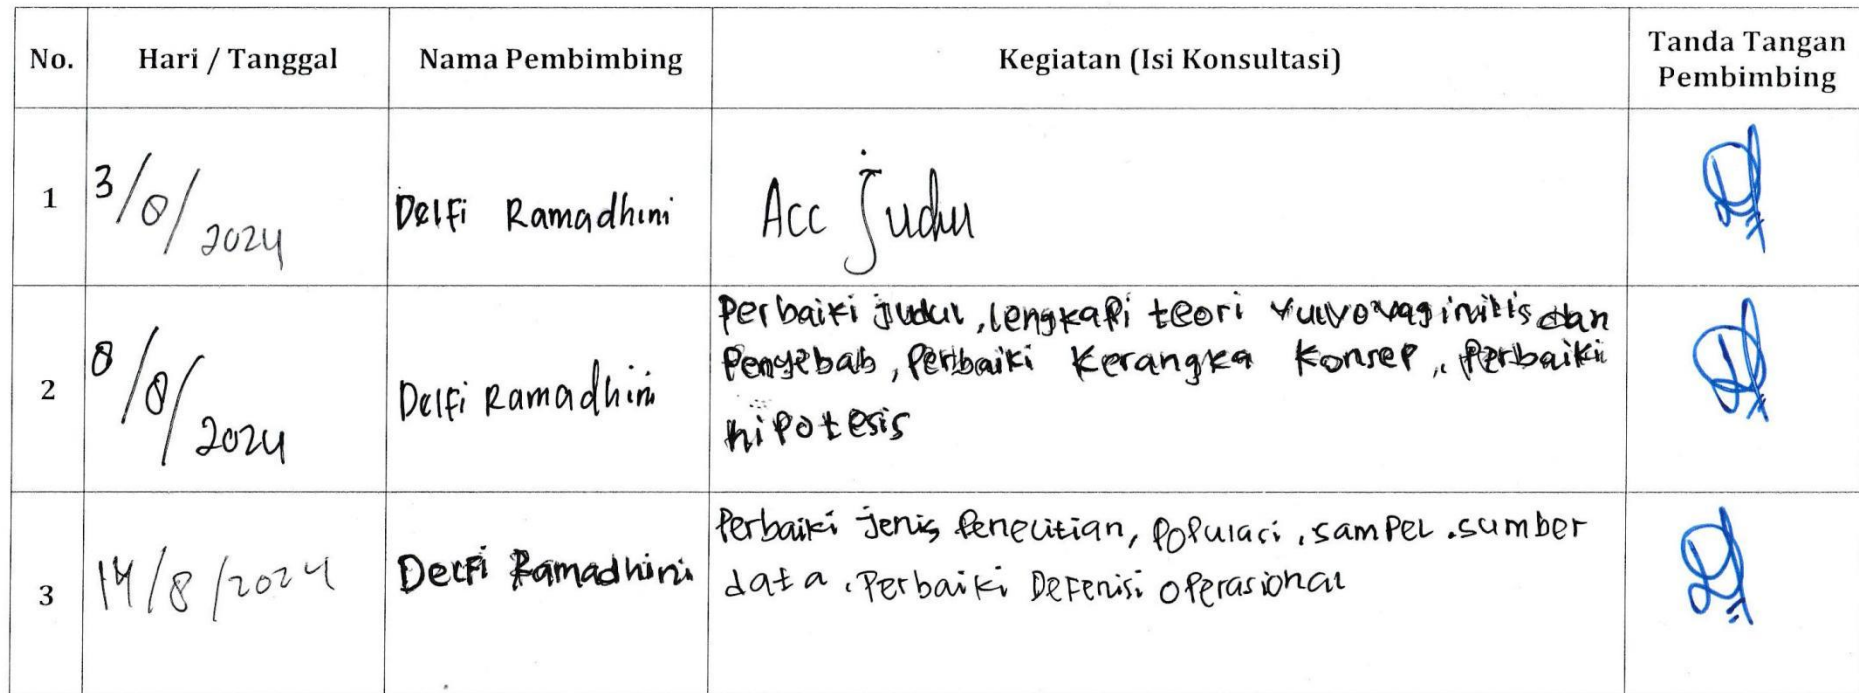 No. Hari / Tanggal Nama Pembimbing Kegiatan (Isi Konsultasi) Tanda Tangan
Pembimbing
1 3/8/2024 Delfi Ramadhini Acc Judul
2 8/8/2024 Delfi Ramadhini Perbaiki judul, lengkapi teori vulvovaginitis dan
Penyebab, Perbaiki Kerangka Konsep, Perbaiki
hipotesis
3 14/8/2024 Delfi Ramadhini Perbaiki jenis Penelitian, Populasi, sampel, sumber
data, Perbaiki Defenisi operasional